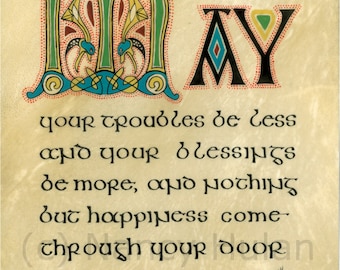 MAY
your troubles be less
and your blessings
be more, and nothing
but happiness come
through your door
(c) Nancy Hulan